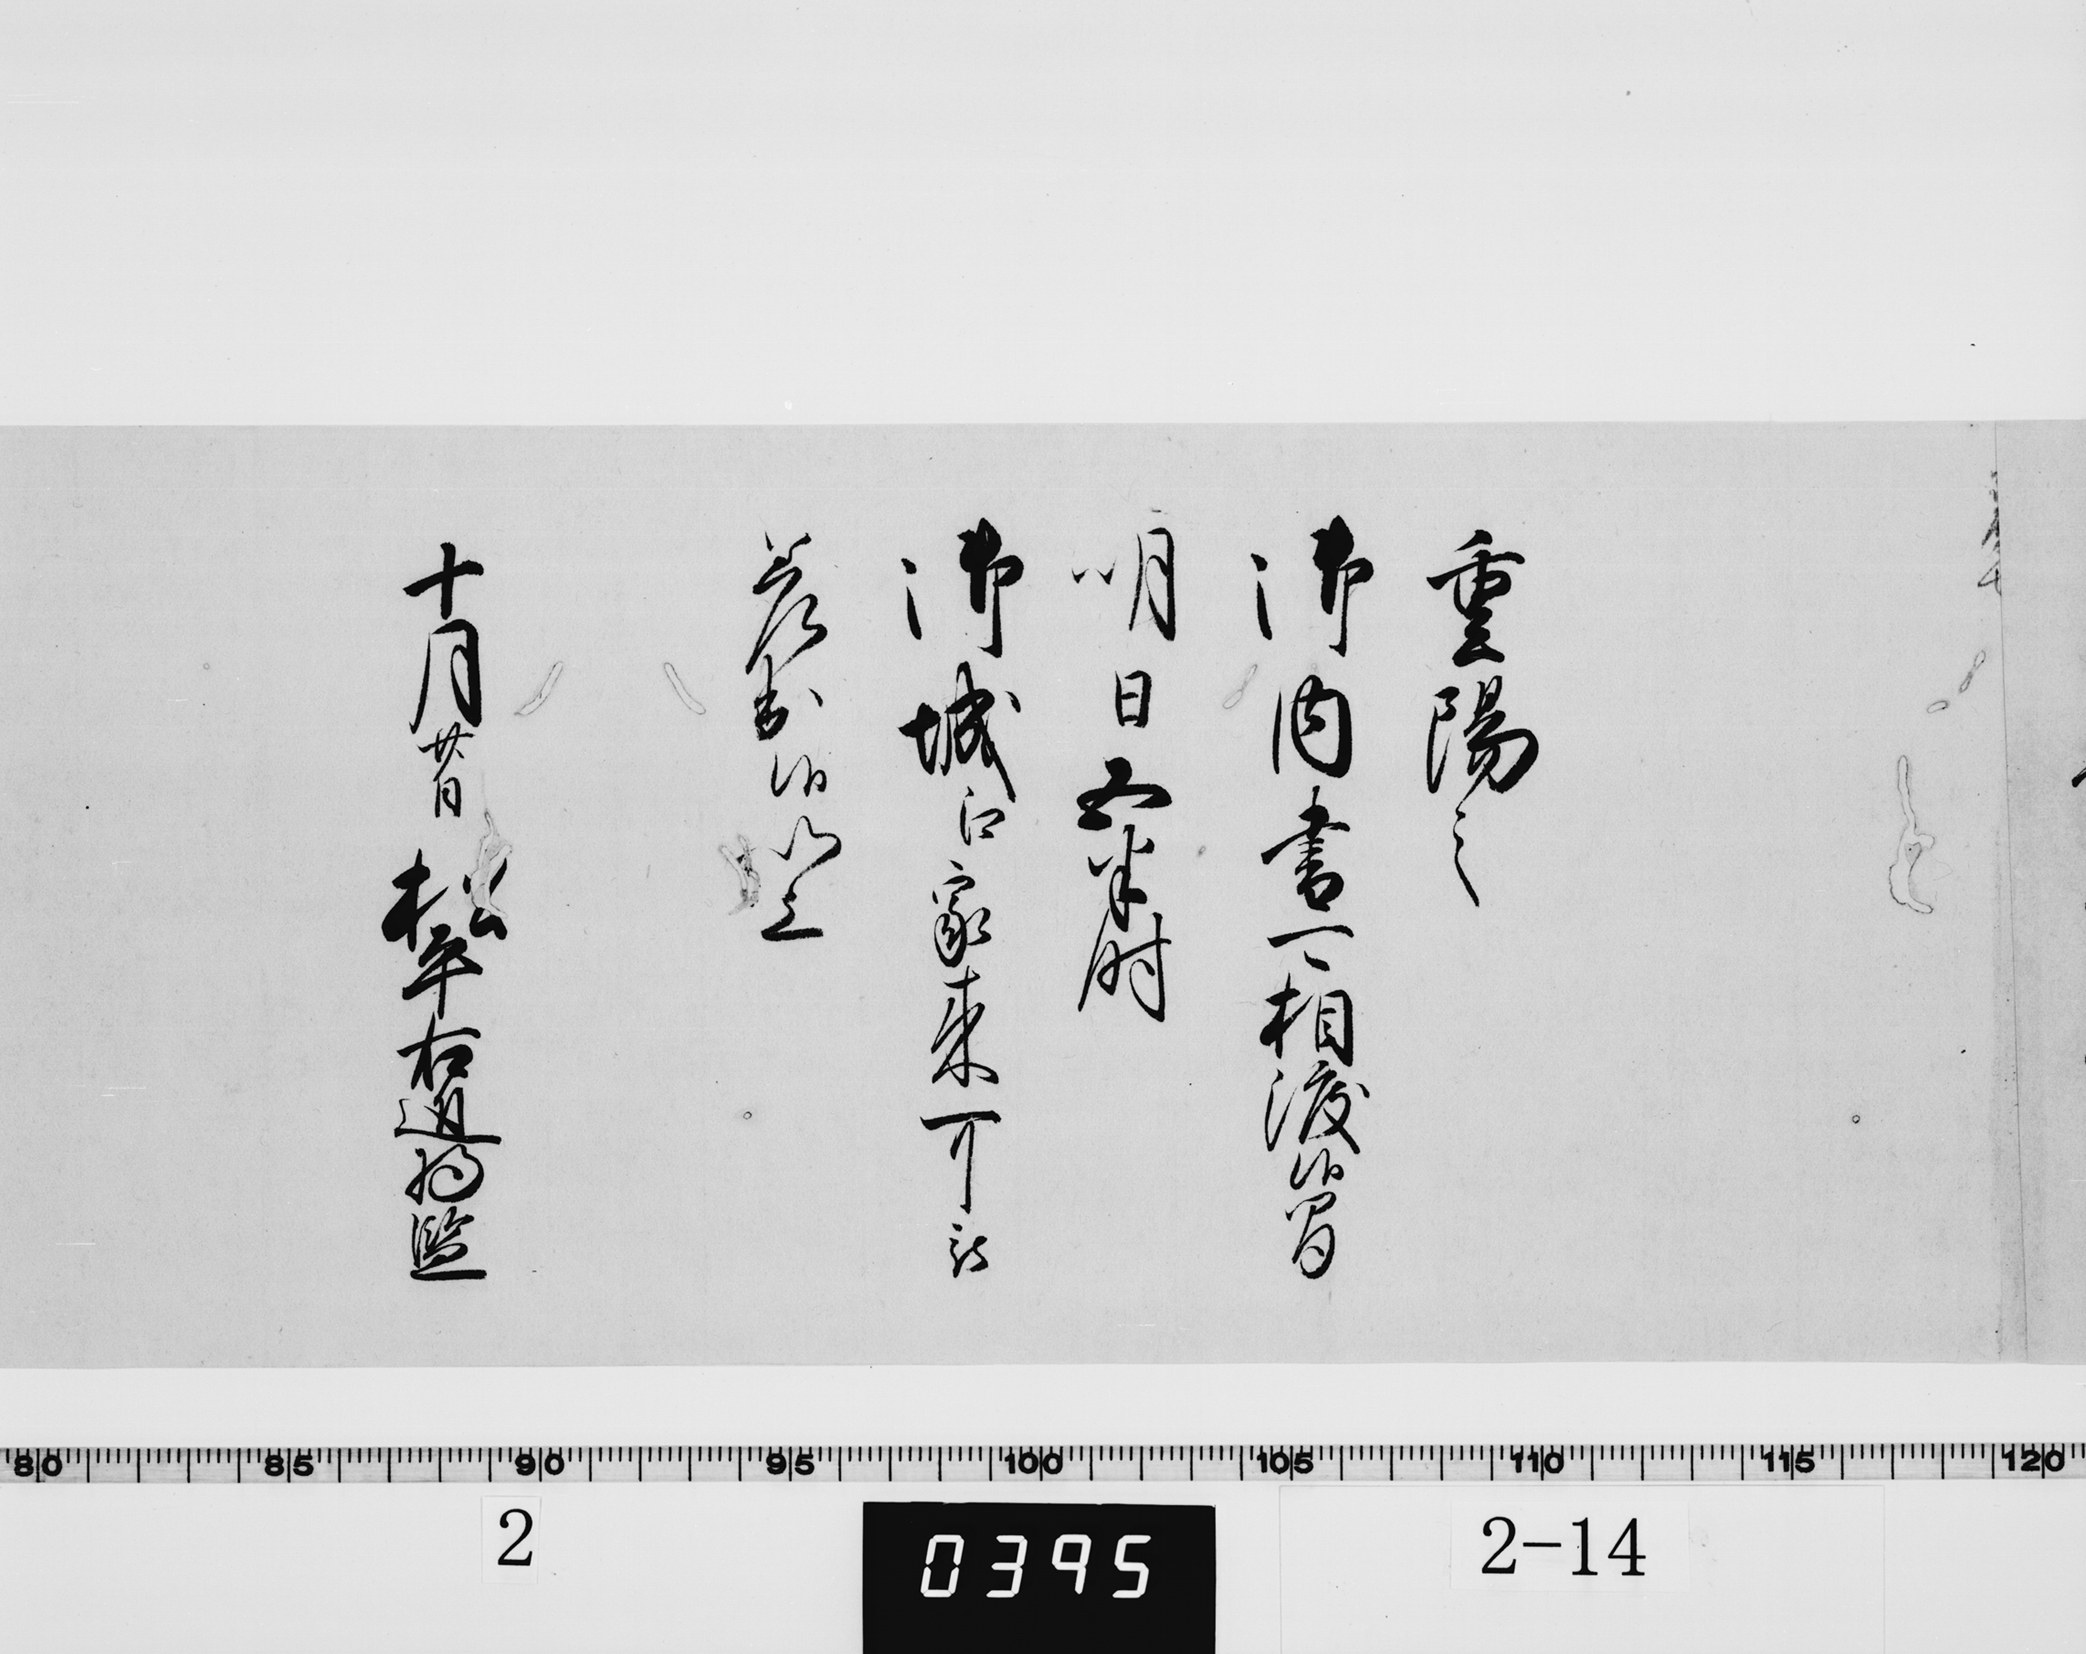 重陽之
御内書可相渡候間
明日五半時
御城江家来可被
差越候以上
十月廿日 松平右近将監
80 85 90 95 100 105 110 115 120
2
0395
2-14